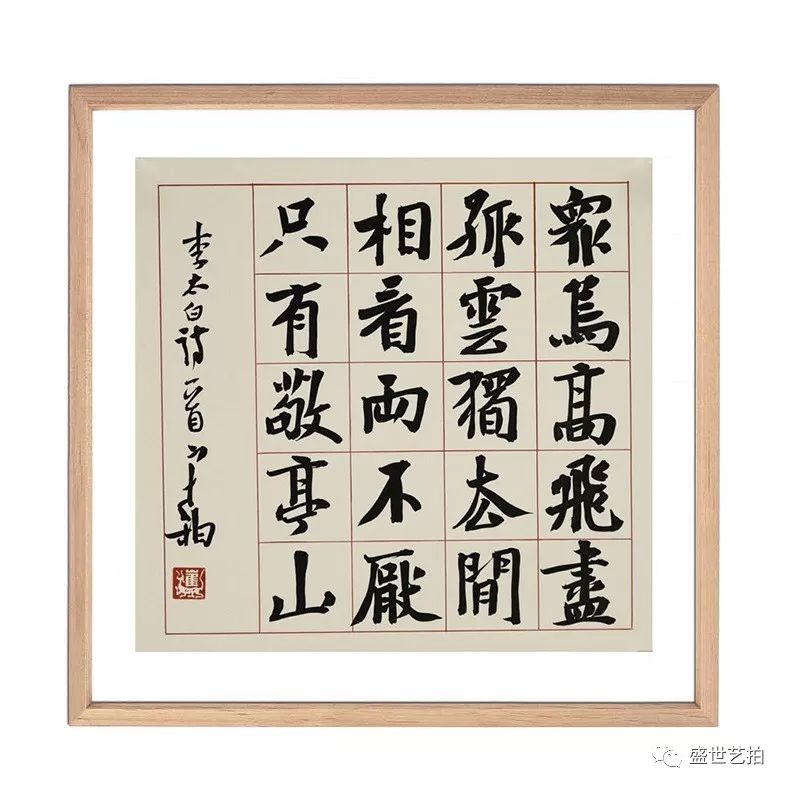 眾鳥高飛盡
孤雲獨去閒
相看兩不厭
只有敬亭山
李太白詩一首
盛世艺拍